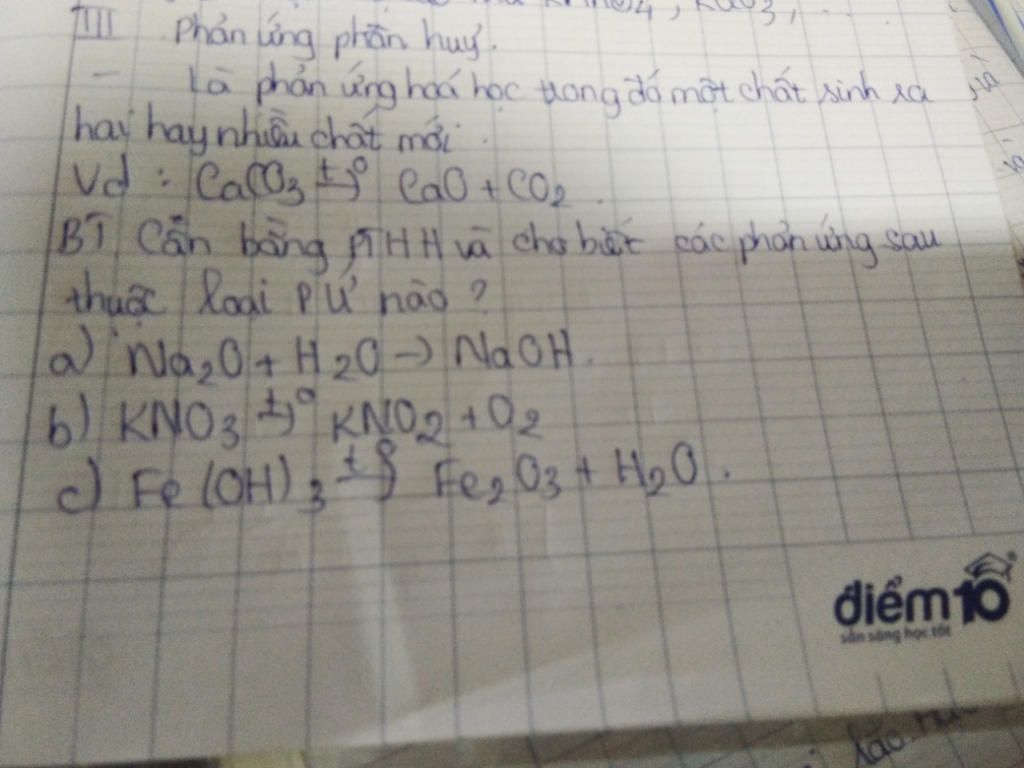 KMnO4, KClO3, ...
III Phản ứng phân huỷ.
- Là phản ứng hoá học trong đó một chất sinh ra
hai hay nhiều chất mới.
Vd: CaCO3 t°→ CaO + CO2.
BT Cân bằng PTHH và cho biết các phản ứng sau
thuộc loại PƯ nào?
a) Na2O + H2O → NaOH.
b) KNO3 t°→ KNO2 + O2
c) Fe(OH)3 t°→ Fe2O3 + H2O.
điểm 10
sẵn sàng học tốt